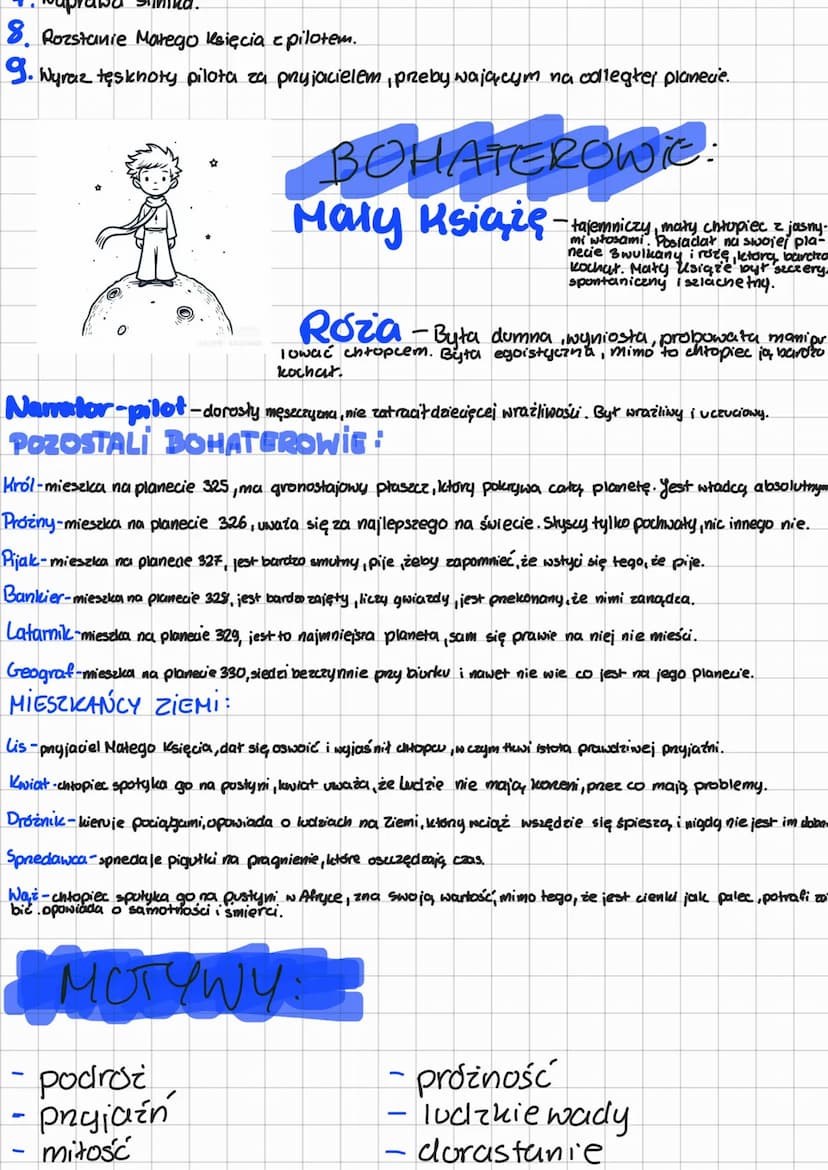 7. Naprawa silnika.
8. Rozstanie Małego Księcia z pilotem.
9. Wyraz tęsknoty pilota za przyjacielem, przebywającym na odległej planecie.
BOHATEROWIE:
Mały Książę - tajemniczy, mały chłopiec z jasny-
mi włosami. Posiadał na swojej pla-
necie 3 wulkany i różę, którą bardzo
kochał. Mały Książę był szczery,
spontaniczny i szlachetny.
Róża - Była dumna, wyniosła, próbowała manipu
lować chłopcem. Była egoistyczna, mimo to chłopiec ją bardzo
kochał.
Narrator-pilot - dorosły mężczyzna, nie zatracił dziecięcej wrażliwości. Był wrażliwy i uczuciowy.
POZOSTALI BOHATEROWIE:
Król - mieszka na planecie 325, ma gronostajowy płaszcz, który pokrywa całą planetę. Jest władcą absolutnym
Próżny - mieszka na planecie 326, uważa się za najlepszego na świecie. Słyszy tylko pochwały, nic innego nie.
Pijak - mieszka na planecie 327, jest bardzo smutny, pije, żeby zapomnieć, że wstyci się tego, że pije.
Bankier - mieszka na planecie 328, jest bardzo zajęty, liczy gwiazdy, jest przekonany, że nimi zarządza.
Latarnik - mieszka na planecie 329, jest to najmniejsza planeta, sam się prawie na niej nie mieści.
Geograf - mieszka na planecie 330, siedzi bezczynnie przy biurku i nawet nie wie co jest na jego planecie.
MIESZKAŃCY ZIEMI:
Lis - przyjaciel Małego Księcia, dał się oswoić i wyjaśnił chłopcu, w czym tkwi istota prawdziwej przyjaźni.
Kwiat - chłopiec spotyka go na pustyni, kwiat uważa, że ludzie nie mają korzeni, przez co mają problemy.
Dróżnik - kieruje pociągami, opowiada o ludziach na Ziemi, którzy wciąż wszędzie się śpieszą, i nigdy nie jest im dobrz
Sprzedawca - sprzedaje pigułki na pragnienie, które oszczędzają czas.
Wąż - chłopiec spotyka go na pustyni w Afryce, zna swoją wartość, mimo tego, że jest cienki jak palec, potrafi za
bić. opowiada o samotności i śmierci.
MOTYWY:
- podróż
- przyjaźń
- miłość
- próżność
- ludzkie wady
- dorastanie